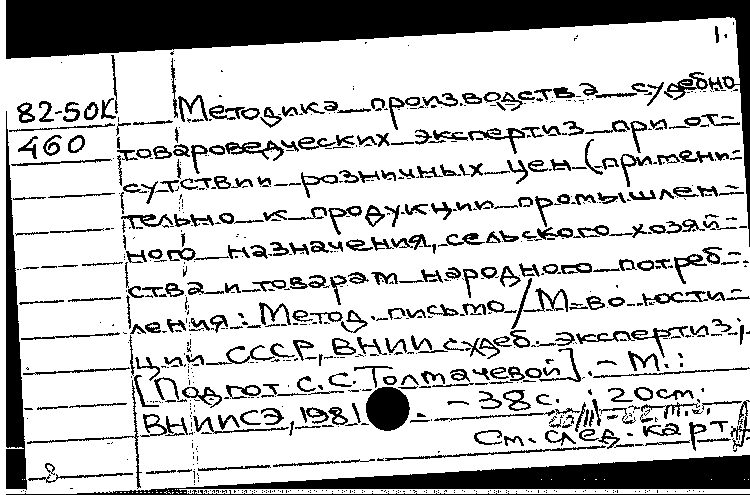 1.
82-50К Методика производства судебно
460 товароведческих экспертиз при от-
сутствии розничных цен (примени-
тельно к продукции промышлен-
ного назначения, сельского хозяй-
ства и товарам народного потреб-
ления: Метод. письмо / М-во юсти-
ции СССР, ВНИИ судеб. экспертиз;
[Подгот С.С.Толмачевой]. - М.:
ВНИИСЭ, 1981 . - 38 с. ; 20см.
См. след. карт.
8